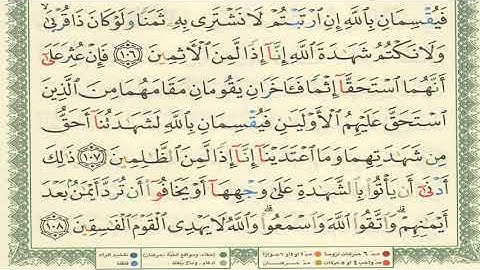 فَيُقْسِمَانِ بِٱللَّهِ إِنِ ٱرْتَبْتُمْ لَا نَشْتَرِى بِهِۦ ثَمَنًا وَلَوْ كَانَ ذَا قُرْبَىٰ
وَلَا نَكْتُمُ شَهَٰدَةَ ٱللَّهِ إِنَّآ إِذًا لَّمِنَ ٱلْـَٔاثِمِينَ ١٠٦ فَإِنْ عُثِرَ عَلَىٰٓ
أَنَّهُمَا ٱسْتَحَقَّآ إِثْمًا فَـَٔاخَرَانِ يَقُومَانِ مَقَامَهُمَا مِنَ ٱلَّذِينَ
ٱسْتَحَقَّ عَلَيْهِمُ ٱلْأَوْلَيَٰنِ فَيُقْسِمَانِ بِٱللَّهِ لَشَهَٰدَتُنَآ أَحَقُّ
مِن شَهَٰدَتِهِمَا وَمَا ٱعْتَدَيْنَآ إِنَّآ إِذًا لَّمِنَ ٱلظَّٰلِمِينَ ١٠٧ ذَٰلِكَ
أَدْنَىٰٓ أَن يَأْتُوا۟ بِٱلشَّهَٰدَةِ عَلَىٰ وَجْهِهَآ أَوْ يَخَافُوٓا۟ أَن تُرَدَّ أَيْمَٰنٌۢ بَعْدَ
أَيْمَٰنِهِمْ ۗ وَٱتَّقُوا۟ ٱللَّهَ وَٱسْمَعُوا۟ ۗ وَٱللَّهُ لَا يَهْدِى ٱلْقَوْمَ ٱلْفَٰسِقِينَ ١٠٨